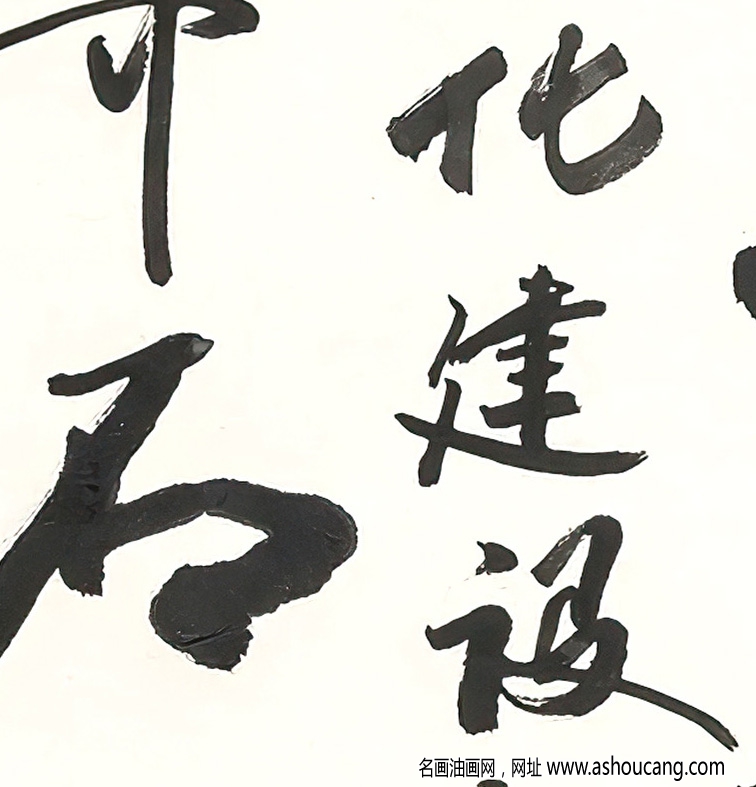 化建设
石
名画油画网，网址 www.ashoucang.com